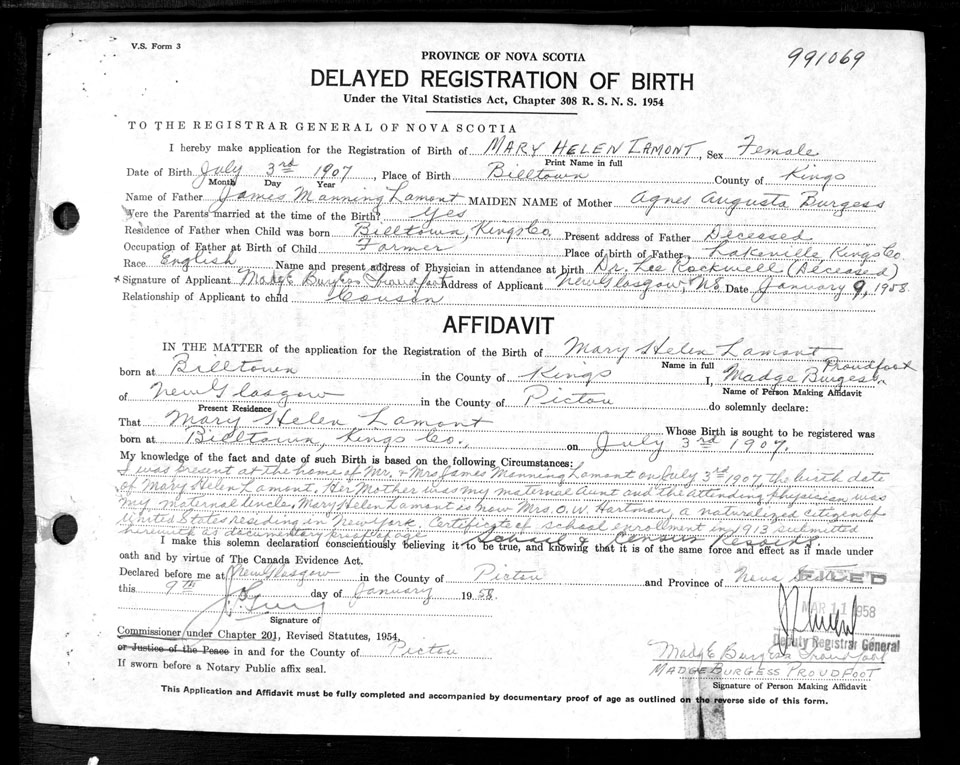 V.S. Form 3
991069
PROVINCE OF NOVA SCOTIA
DELAYED REGISTRATION OF BIRTH
Under the Vital Statistics Act, Chapter 308 R. S. N. S. 1954
TO THE REGISTRAR GENERAL OF NOVA SCOTIA
I hereby make application for the Registration of Birth of MARY HELEN LAMONT, Sex Female
Print Name in full
Date of Birth July 3rd 1907, Place of Birth Billtown County of Kings
Month Day Year
Name of Father James Manning Lamont MAIDEN NAME of Mother Agnes Augusta Burgess
Were the Parents married at the time of the Birth? Yes
Residence of Father when Child was born Billtown, Kings Co. Present address of Father Deceased
Occupation of Father at Birth of Child Farmer Place of birth of Father Lakeville Kings Co
Race English Name and present address of Physician in attendance at birth Dr. Lee Rockwell (Deceased)
x Signature of Applicant Madge Burgess Proudfoot Address of Applicant New Glasgow, NS Date January 9, 1958.
Relationship of Applicant to child Cousin
AFFIDAVIT
IN THE MATTER of the application for the Registration of the Birth of Mary Helen Lamont
Name in full
born at Billtown in the County of Kings I, Madge Burgess Proudfoot
Name of Person Making Affidavit
of New Glasgow in the County of Pictou do solemnly declare:
Present Residence
That Mary Helen Lamont Whose Birth is sought to be registered was
born at Billtown, Kings Co., on July 3rd 1907.
My knowledge of the fact and date of such Birth is based on the following Circumstances:
I was present at the home of Mr. & Mrs James Manning Lamont on July 3rd 1907, the birth date
of Mary Helen Lamont. Her Mother was my maternal Aunt and the attending Physician was
my maternal uncle. Mary Helen Lamont is now Mrs. O.W. Hartman, a naturalized citizen of
United States residing in New York. Certificate of school enrollment in 1913 submitted
herewith as documentary proof of age School & Census Records
I make this solemn declaration conscientiously believing it to be true, and knowing that it is of the same force and effect as if made under
oath and by virtue of The Canada Evidence Act.
Declared before me at New Glasgow in the County of Pictou and Province of Nova Scotia
FILED
this 9th day of January 1958.
MAR 11 1958
Signature of
Deputy Registrar General
Commissioner under Chapter 201, Revised Statutes, 1954,
or Justice of the Peace in and for the County of Pictou
Madge Burgess Proudfoot
MADGE BURGESS PROUDFOOT
If sworn before a Notary Public affix seal.
Signature of Person Making Affidavit
This Application and Affidavit must be fully completed and accompanied by documentary proof of age as outlined on the reverse side of this form.